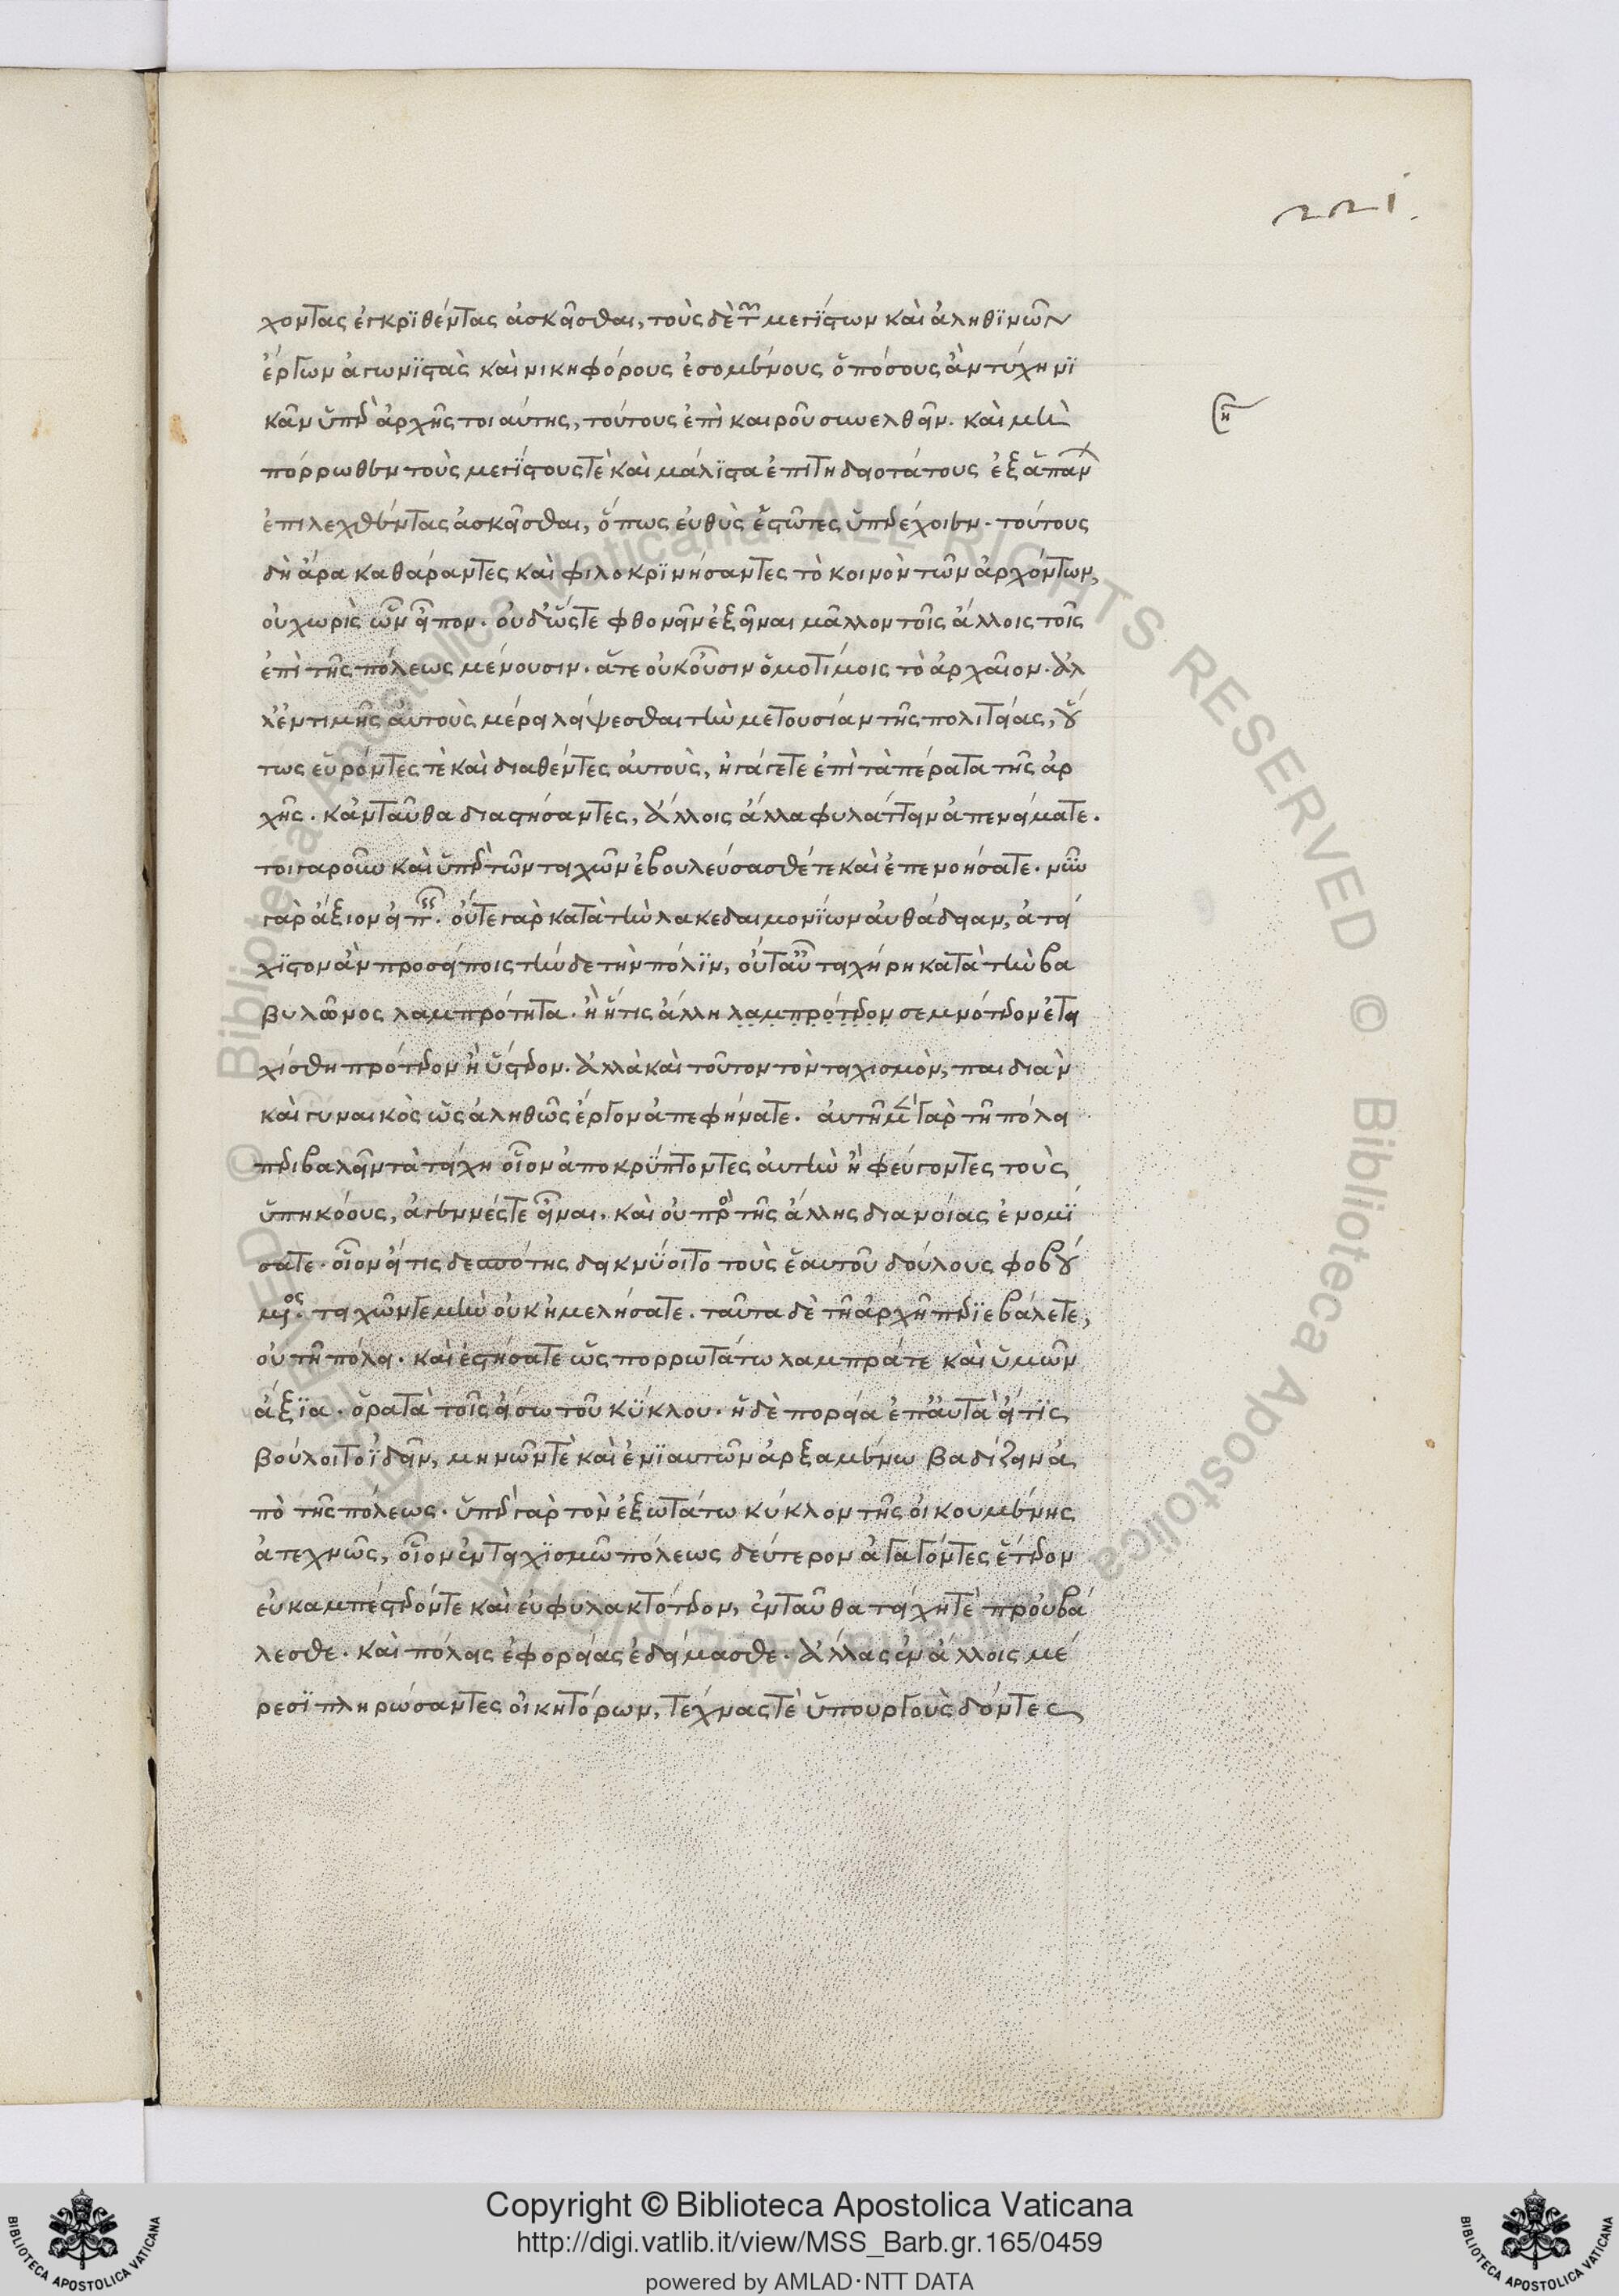 221.
χοντας ἐγκρϊθέντας ἀσκεῖσθαι, τοὺς δὲ τῶν μεγίστων καὶ ἀληθϊνῶν
ἔργων ἀγωνϊστὰς καὶ νικηφόρους ἐσομένους ὁπόσους ἂν τύχη νϊ
κᾶν ὑπὲρ ἀρχῆς τοιαύτης, τούτους ἐπὶ καιροῦ συνελθεῖν. καὶ μὴ
πόρρωθεν τοὺς μεγίστους τὲ καὶ μάλϊστα ἐπιτηδειοτάτους ἐξ ἁπάντων
ἐπιλεχθέντας ἀσκεῖσθαι, ὅπως εὐθὺς ἑστῶτες ὑπερέχοιεν. τούτους
δὴ ἄρα καθάραντες καὶ φιλοκρϊνήσαντες τὸ κοινὸν τῶν ἀρχόντων,
οὐ χωρὶς ὧν εἶπον. οὐδ' ὥστε φθονεῖν ἐξεῖναι μᾶλλον τοῖς ἄλλοις τοῖς
ἐπὶ τῆς πόλεως μένουσιν. ἅτε οὐκ οὖσιν ὁμοτίμοις τὸ ἀρχαῖον. ἀλ
λ' ἐν τιμῆς αὐτοὺς μέρει λείψεσθαι τὴν μετουσίαν τῆς πολιτείας, οὕ
τως εὑρόντες τὲ καὶ διαθέντες αὐτοὺς, ἠγάγετε ἐπὶ τὰ πέρατα τῆς ἀρ
χῆς. κἀνταῦθα διαστήσαντες, ἄλλοις ἄλλα φυλάττειν ἀπενείματε.
τοιγαροῦν καὶ ὑπὲρ τῶν τειχῶν ἐβουλεύσασθέ τε καὶ ἐπενοήσατε. νῦν
γὰρ ἄξιον εἰπεῖν. οὔτε γὰρ κατὰ τὴν λακεδαιμονΐων αὐθάδειαν, ἀτεί
χϊστον ἂν προσείποις τήνδε τὴν πόλϊν, οὔτ' αὖ τειχήρη κατὰ τὴν βα
βυλῶνος λαμπρότητα. ἢ ἥτις ἄλλη λαμπρότερον σεμνότερον ἐτει
χίσθη πρότερον ἢ ὕστερον. ἀλλὰ καὶ τοῦτον τὸν τειχισμὸν, παιδιὰν
καὶ γυναικὸς ὡς ἀληθῶς ἔργον ἀπεφήνατε. αὐτῆ μὲν γὰρ τῆ πόλει
περιβαλεῖν τὰ τείχη οἷον ἀποκρύπτοντες αὐτὴν ἢ φεύγοντες τοὺς
ὑπηκόους, ἀγεννές τε εἶναι. καὶ οὐ πρὸ τῆς ἄλλης διανοίας ἐνομϊ
σατε. οἷον εἴ τις δεσπότης δεικνΰοιτο τοὺς ἑαυτοῦ δούλους φοβού
μενος. τειχῶν γε μὴν οὐκ ἠμελήσατε. ταῦτα δὲ τῆ ἀρχῆ περϊεβάλετε,
οὐ τῆ πόλει. καὶ ἐστήσατε ὡς πορρωτάτω λαμπρά τε καὶ ὑμῶν
ἄξϊα. ὁρατὰ τοῖς εἴσω τοῦ κύκλου. ἡ δὲ πορεία ἐπ' αὐτὰ εἴ τϊς
βούλοιτο ἰδεῖν, μηνῶν τὲ καὶ ἐνϊαυτῶν ἀρξαμένω βαδίζειν ἀ
πὸ τῆς πόλεως. ὑπὲρ γὰρ τὸν ἐξωτάτω κύκλον τῆς οἰκουμένης
ἀτεχνῶς, οἷον ἐν τειχϊσμῶ πόλεως δεύτερον ἀγαγόντες ἕτερον
εὐκαμπέστερόν τε καὶ εὐφυλακτότερον, ἐνταῦθα τείχη τὲ προὐβά
λεσθε. καὶ πόλεις ἐφορείας ἐδείμασθε. ἄλλας ἐν ἄλλοις μέ
ρεσϊ πληρώσαντες οἰκητόρων, τέχνας τὲ ὑπουργοὺς δόντες